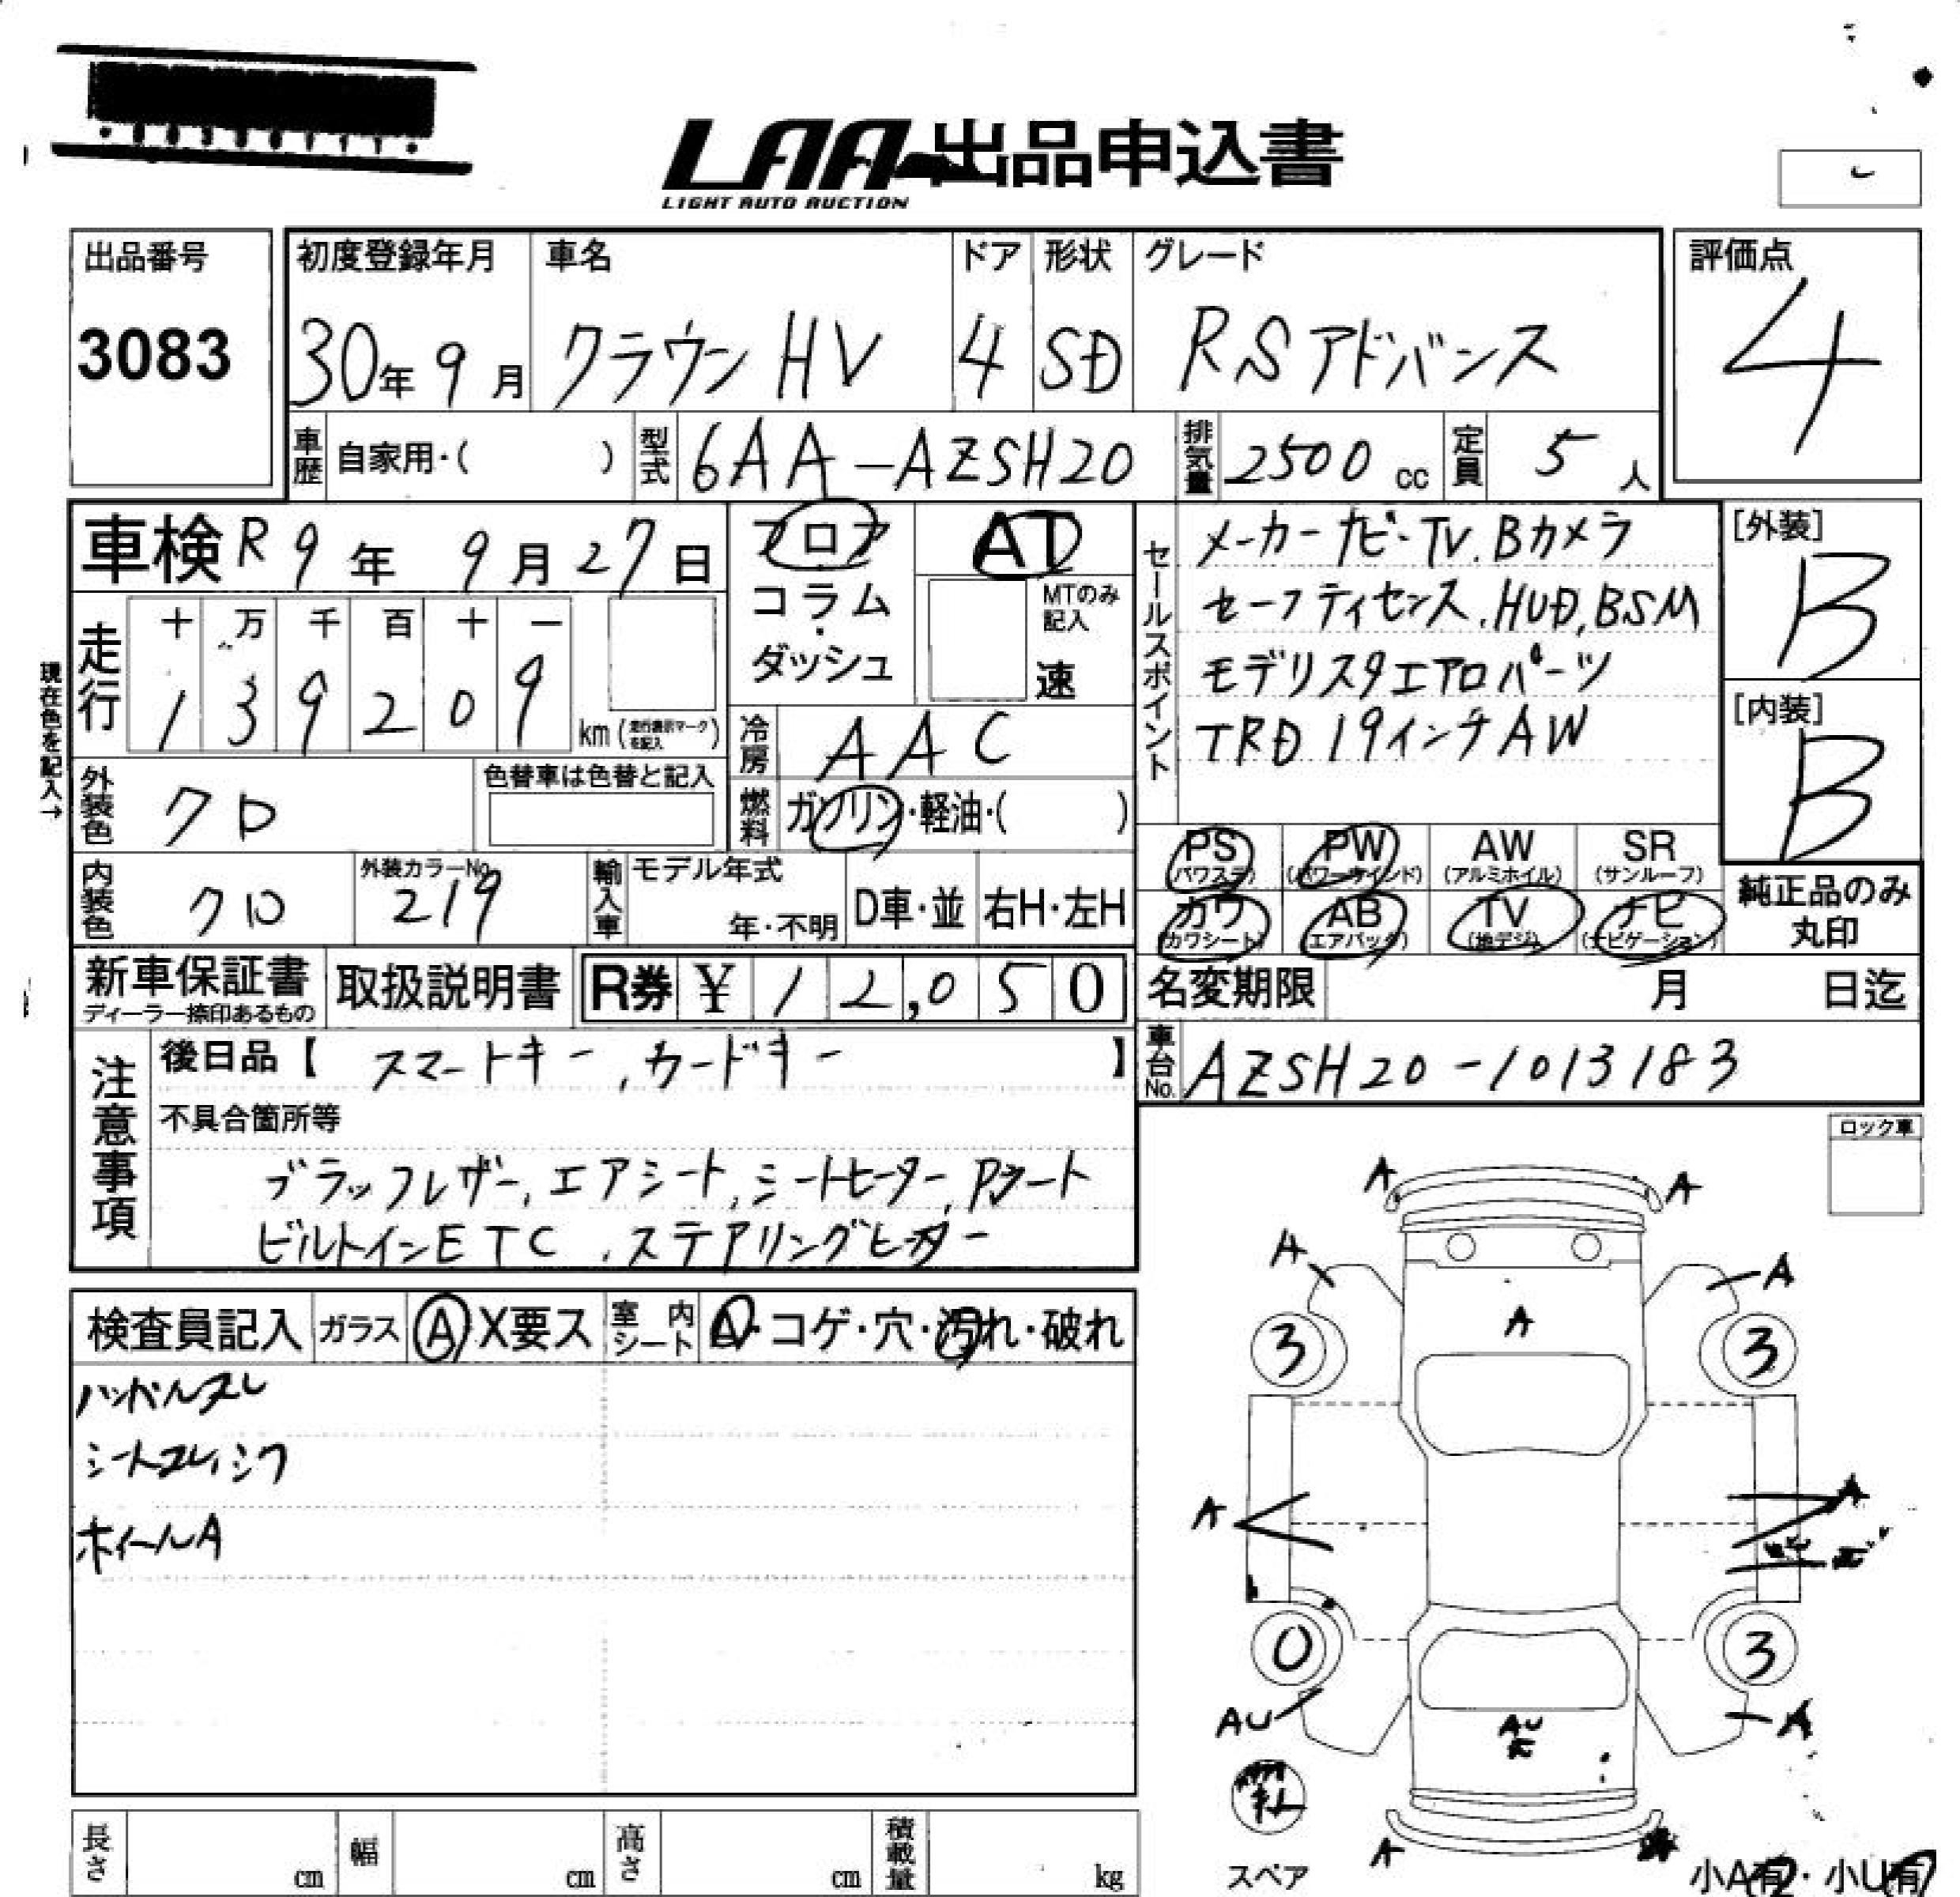 LAA 出品申込書
LIGHT AUTO AUCTION
出品番号
3083
初度登録年月
30年 9月
車名
クラウン HV
ドア
4
形状
SD
グレード
RSアドバンス
評価点
4
車歴 自家用・( )
型式 6AA-AZSH20
排気量 2500 cc
定員 5 人
車検 R9年 9月27日
フロア・コラム・ダッシュ
AT
MTのみ記入
速
セールスポイント
メーカーナビ・TV.Bカメラ
セーフティセンス.HUD,BSM
モデリスタエアロパーツ
TRD 19インチAW
[外装]
B
[内装]
B
現在色を記入→
走行
十 万 千 百 十 一
1 3 9 2 0 9 km (走行表示マークを記入)
冷房 AAC
外装色 クロ
色替車は色替と記入
燃料 ガソリン・軽油・( )
内装色 クロ
外装カラーNo.
219
輸入車
モデル年式
年・不明
D車・並
右H・左H
PS (パワステ)
PW (パワーウインド)
AW (アルミホイル)
SR (サンルーフ)
カワ (カワシート)
AB (エアバック)
TV (地デジ)
ナビ (ナビゲーション)
純正品のみ丸印
新車保証書
ディーラー捺印あるもの
取扱説明書
R券 ¥ 12,050
名変期限 月 日迄
車台No. AZSH20-1013183
注意事項
後日品【 スマートキー,カードキー 】
不具合箇所等
ブラックレザー,エアシート,シートヒーター,Pシート
ビルトインETC ,ステアリングヒーター
ロック車
検査員記入
ガラス A X要ス
室内シート A・コゲ・穴・汚れ・破れ
ハンドルスレ
シートスレ,シワ
ホイールA
A A
A A
A
3 3
A A
0 3
AU AU A
A
スペア
小A有・小U有
長さ cm
幅 cm
高さ cm
積載量 kg